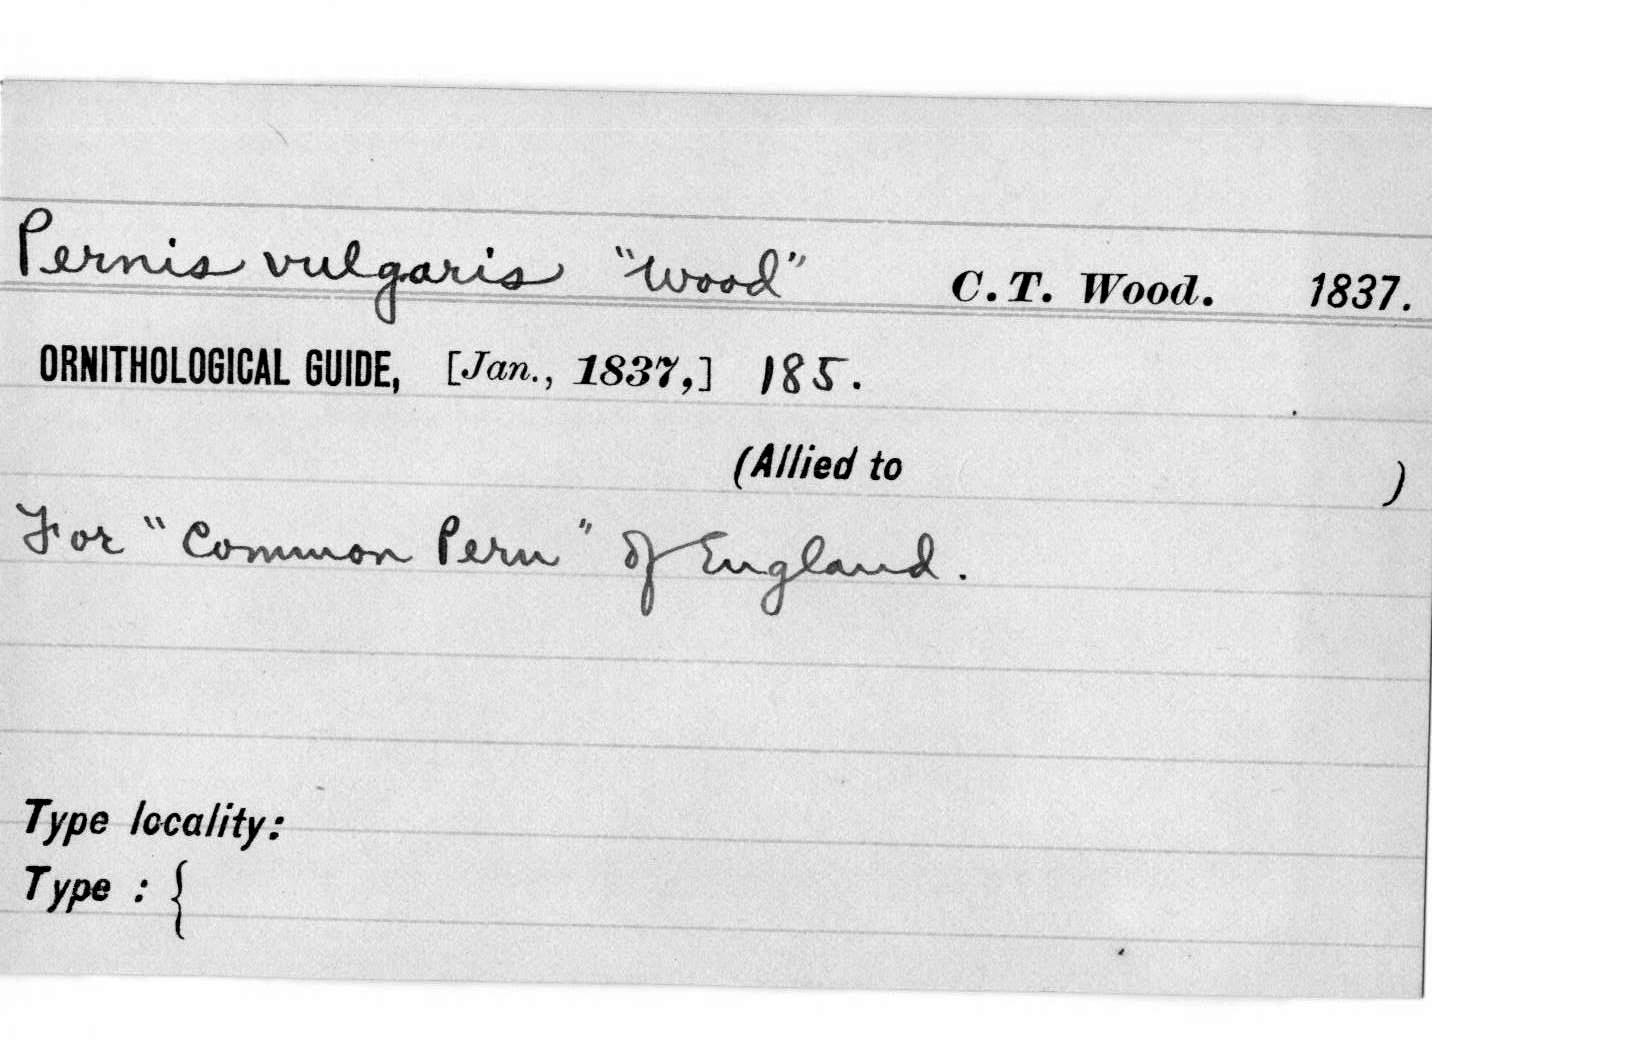 Pernis vulgaris "Wood" C. T. Wood. 1837.
ORNITHOLOGICAL GUIDE, [Jan., 1837,] 185.
(Allied to )
For "Common Pern" of England.
Type locality:
Type : {